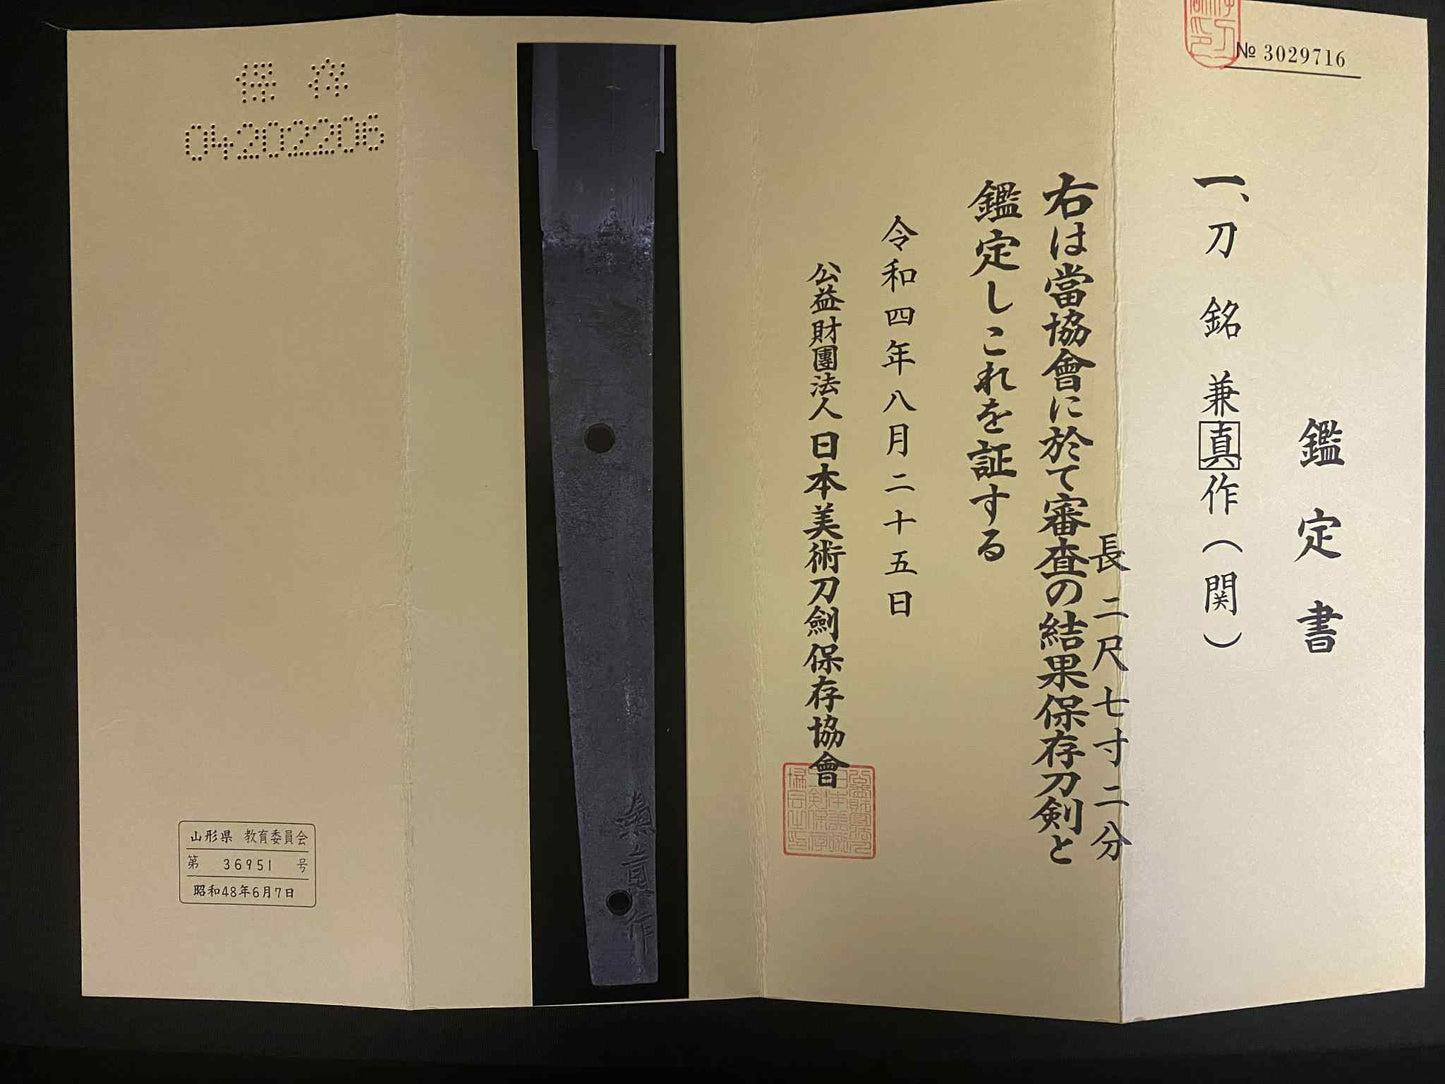 № 3029716
鑑定書
一、刀 銘 兼真作(関)
長 二尺七寸二分
右は當協會に於て審査の結果保存刀剣と
鑑定しこれを証する
令和四年八月二十五日
公益財團法人 日本美術刀劍保存協會
保存
04202206
山形県 教育委員会
第 36951 号
昭和48年6月7日